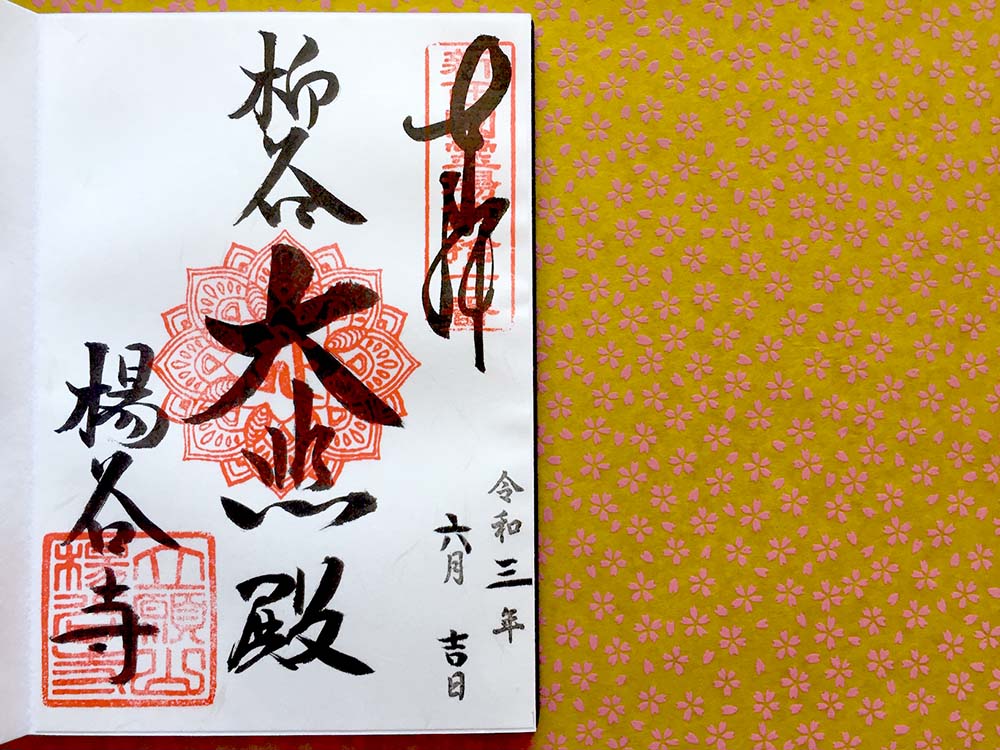 奉拝
令和三年
六月 吉日
柳谷
大照殿
楊谷寺
立願山
楊谷寺